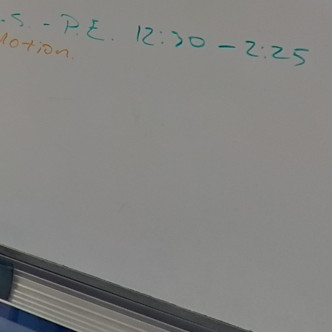 .S. - P.E. 12:30 - 2:25
Motion.